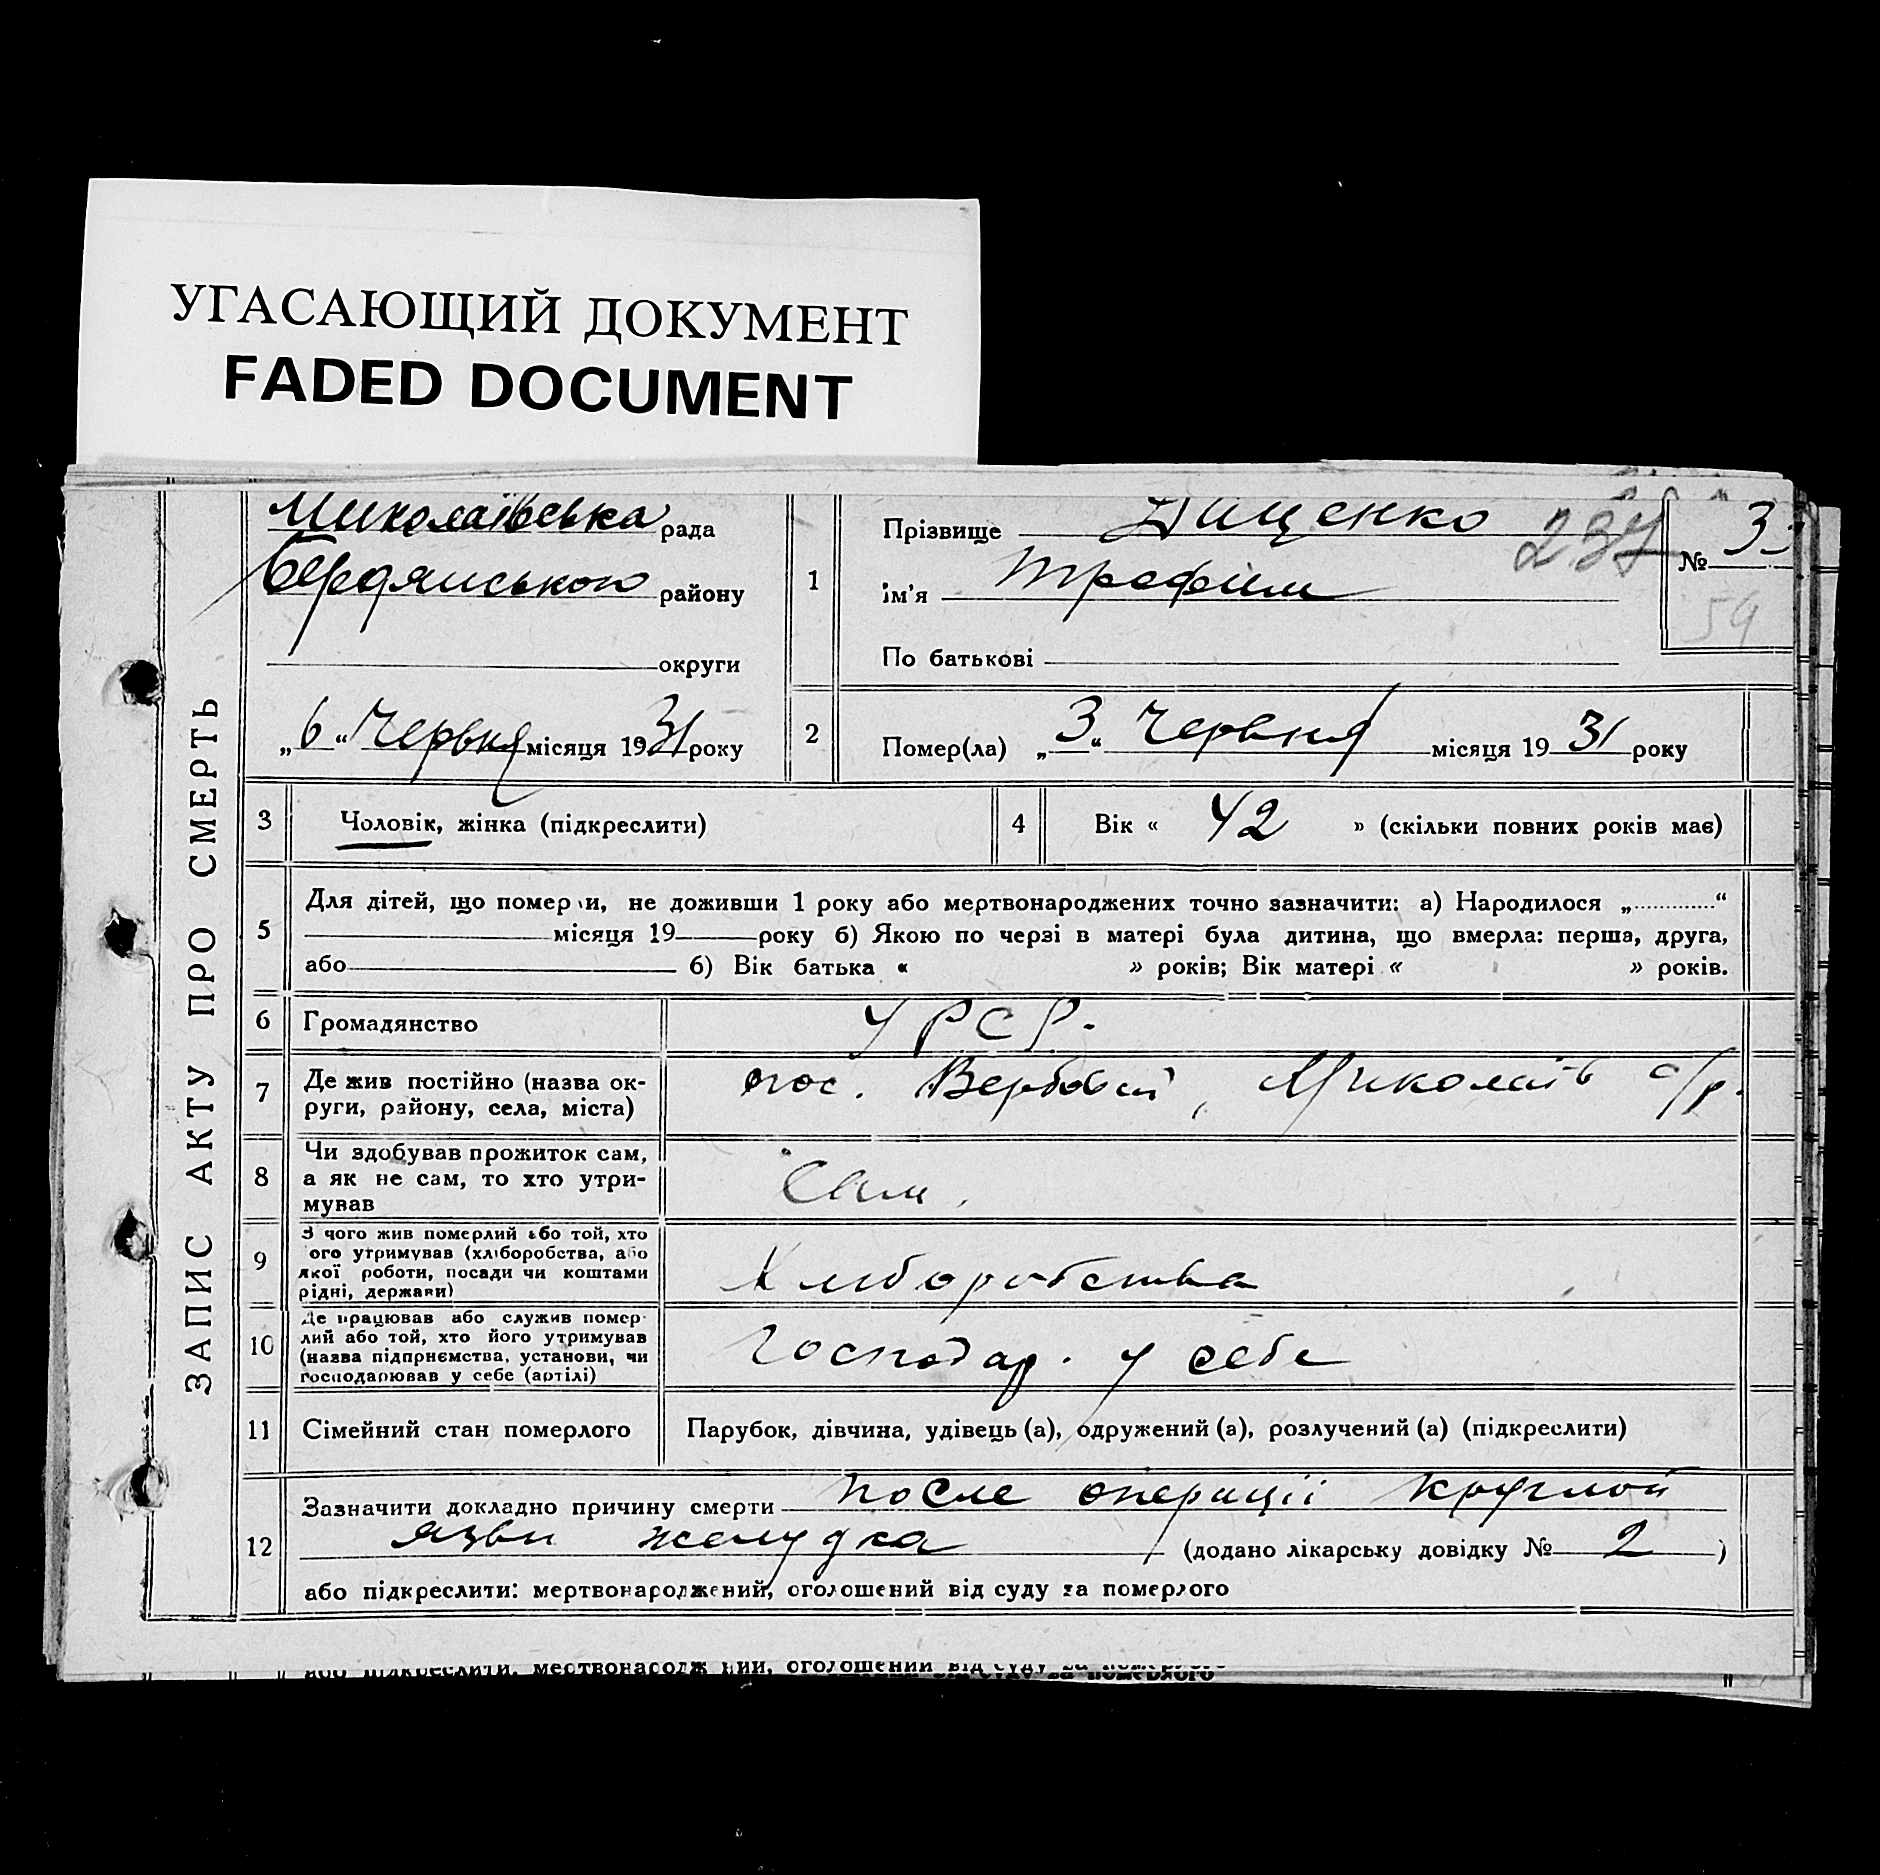 УГАСАЮЩИЙ ДОКУМЕНТ
FADED DOCUMENT
ЗАПИС АКТУ ПРО СМЕРТЬ
Миколаївська рада
Бердянського району
округи
„6“ Червня місяця 1931 року
1
Прізвище Диценко
237
№ 3
54
ім'я Трофим
По батькові
2
Помер(ла) „3“ Червня місяця 1931 року
3 Чоловік, жінка (підкреслити)
4 Вік « 42 » (скільки повних років має)
5
Для дітей, що померли, не доживши 1 року або мертвонароджених точно зазначити: а) Народилося „ “
місяця 19 року б) Якою по черзі в матері була дитина, що вмерла: перша, друга,
або б) Вік батька « » років; Вік матері « » років.
6 Громадянство УРСР.
7
Де жив постійно (назва ок-
руги, району, села, міста)
пос. Вербовий, Миколаїв с/р.
8
Чи здобував прожиток сам,
а як не сам, то хто утри-
мував
Сам.
9
З чого жив померлий або той, хто
ого утримував (хліборобства, або
якої роботи, посади чи коштами
рідні, держави)
Хліборобства
10
Де працював або служив помер-
лий або той, хто його утримував
(назва підприємства, установи, чи
господарював у себе (артілі)
Господар. у себе
11 Сімейний стан померлого Парубок, дівчина, удівець (а), одружений (а), розлучений (а) (підкреслити)
12
Зазначити докладно причину смерти после операції круглой
язви желудка (додано лікарську довідку № 2 )
або підкреслити: мертвонароджений, оголошений від суду за померлого
або підкреслити: мертвонароджений, оголошений від суду за померлого